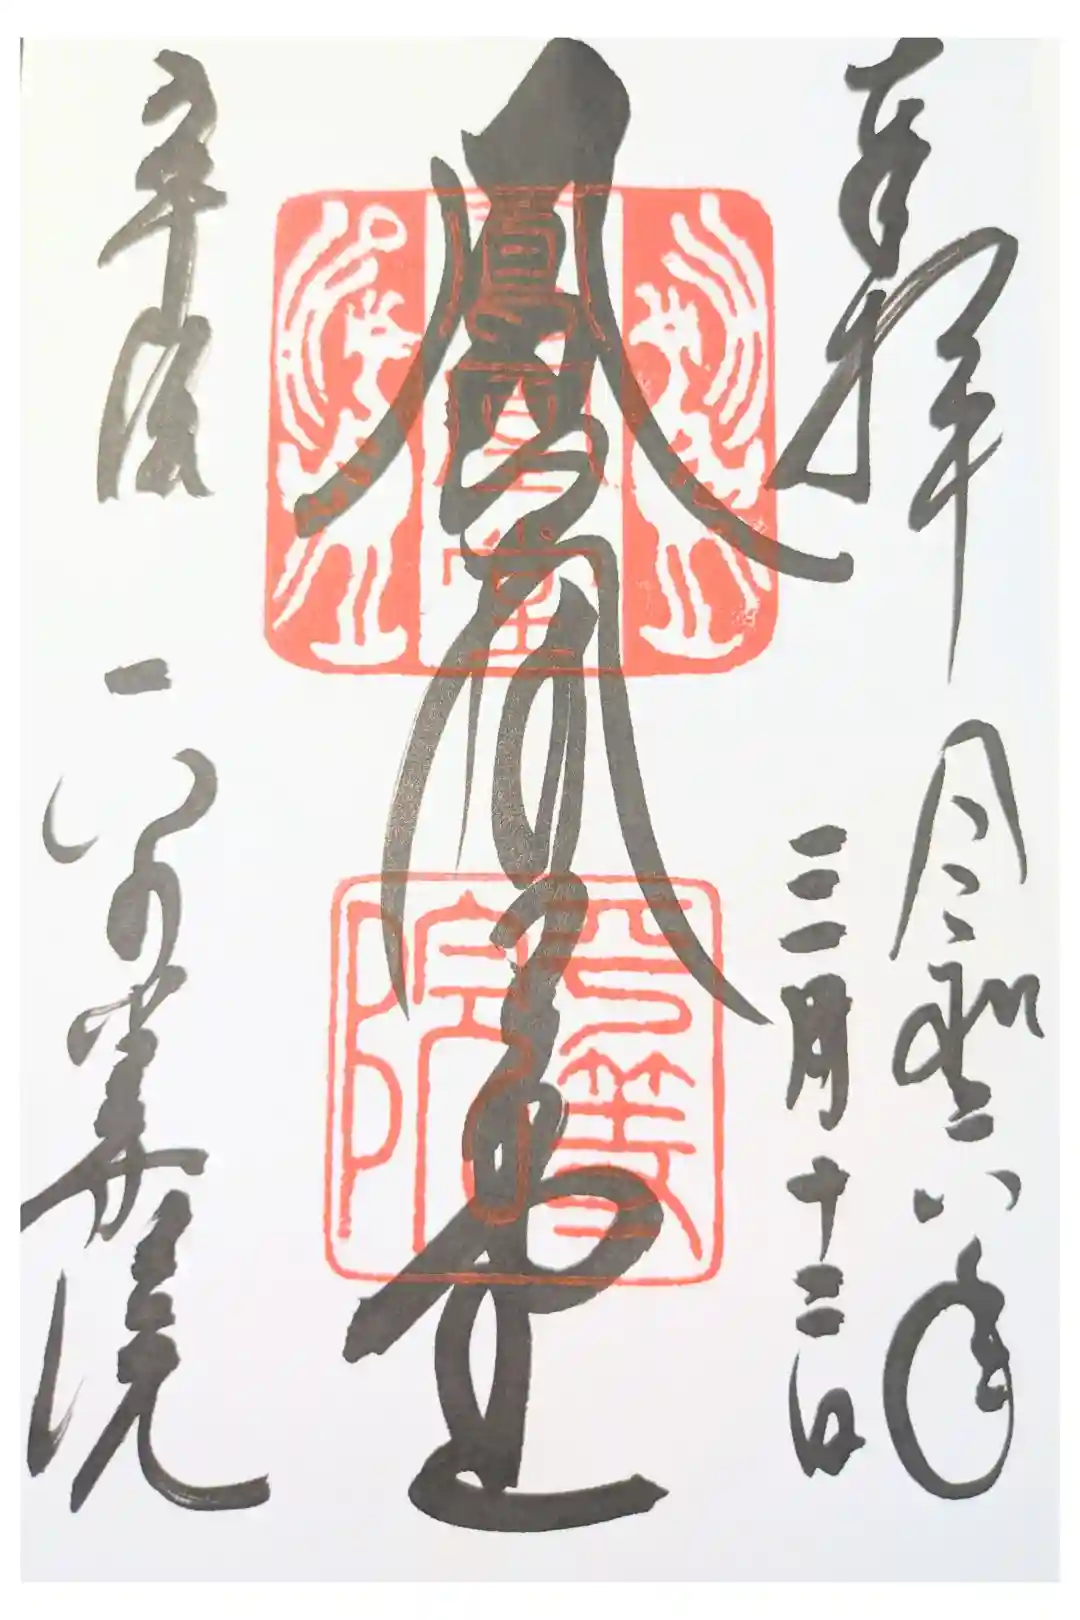 奉拝
令和六年
三月十二日
鳳凰堂
鳳凰堂
平等院
宇治
平等院